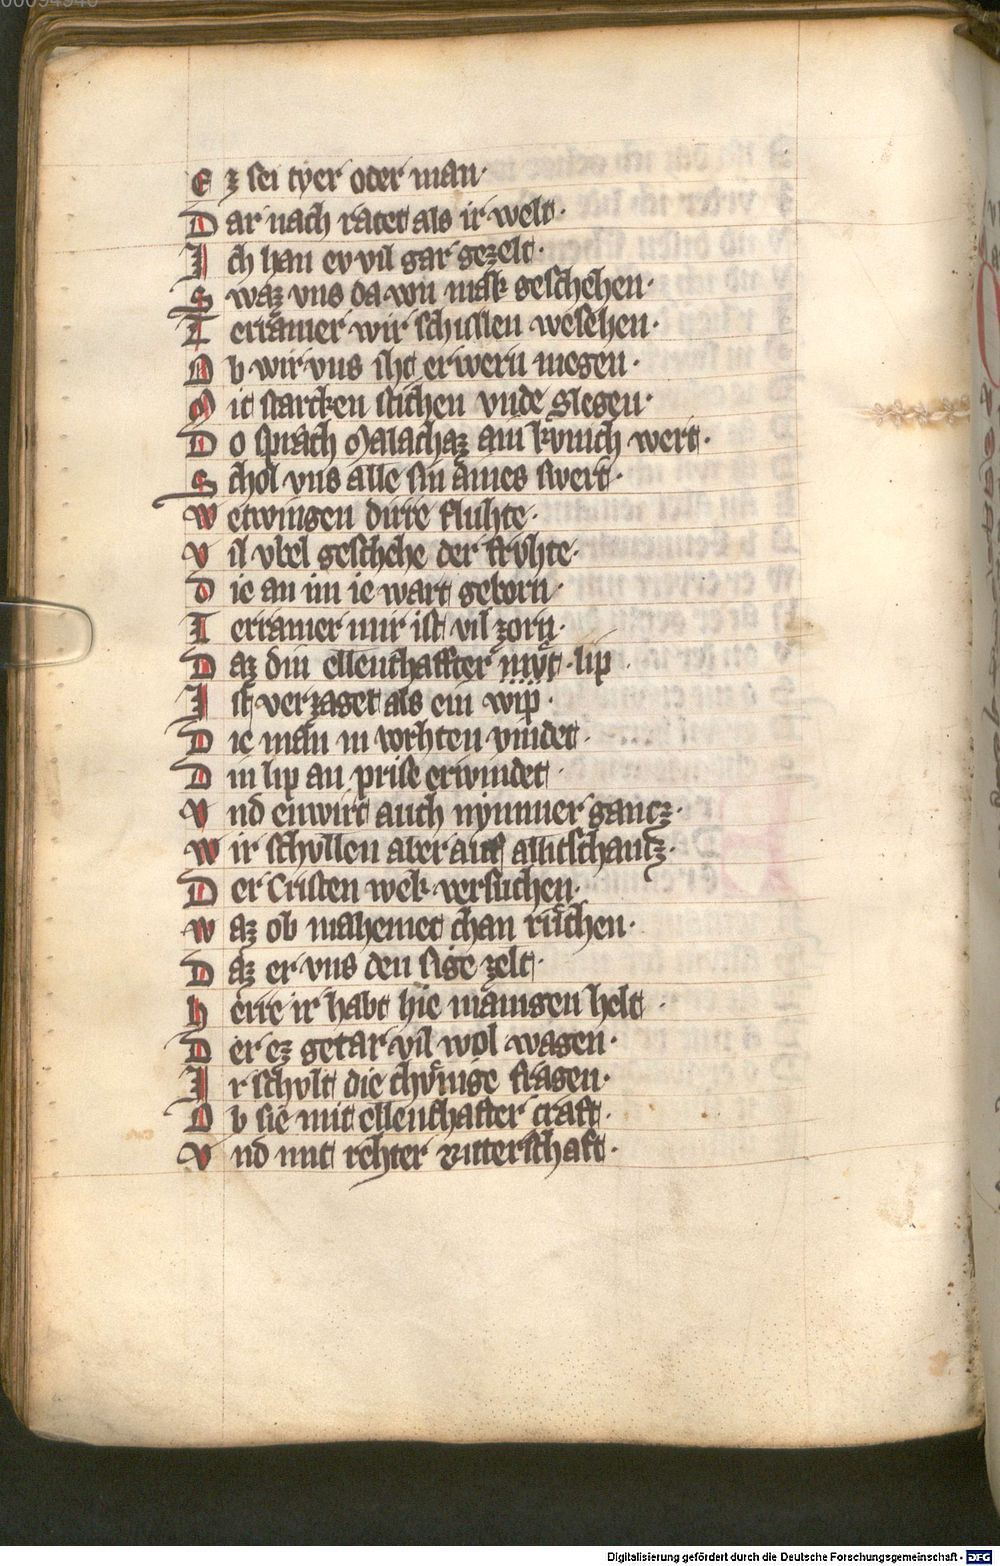 E z sei tyer oder man·
D ar nach ratet als ir welt·
I ch han ev vil gar gezelt·
S waz vns da von mak geschehen·
T erramer wir schullen wesehen·
O b wir vns iht erwern megen·
M it starcken stichen vnde slegen·
D o sprach Malachaz ain kvnich wert·
S chol vns alle sin aines swert·
W etwingen dirre fluhte·
V il vbel geschehe der frvhte·
D ie an im ie wart geborn·
T erramer mir ist vil zorn·
D az din ellenthaffter mvt lip
I st verzaget als ein wip·
D ie man in vorhten vindet·
D in lip an prise erwindet·
V nd enwirt auch nymmer gantz·
W ir schvllen aber auf allitschantz·
D er Cristen wek versuchen·
W az ob mahemet chan ruchen·
D az er vns den sige zelt·
H erre ir habt hie manigen helt·
D er ez getar vil wol wagen·
I r schvlt die chvnige fragen·
O b sie mit ellenthafter craft·
V nd mit rehter Ritterschaft·
Digitalisierung gefördert durch die Deutsche Forschungsgemeinschaft - DFG